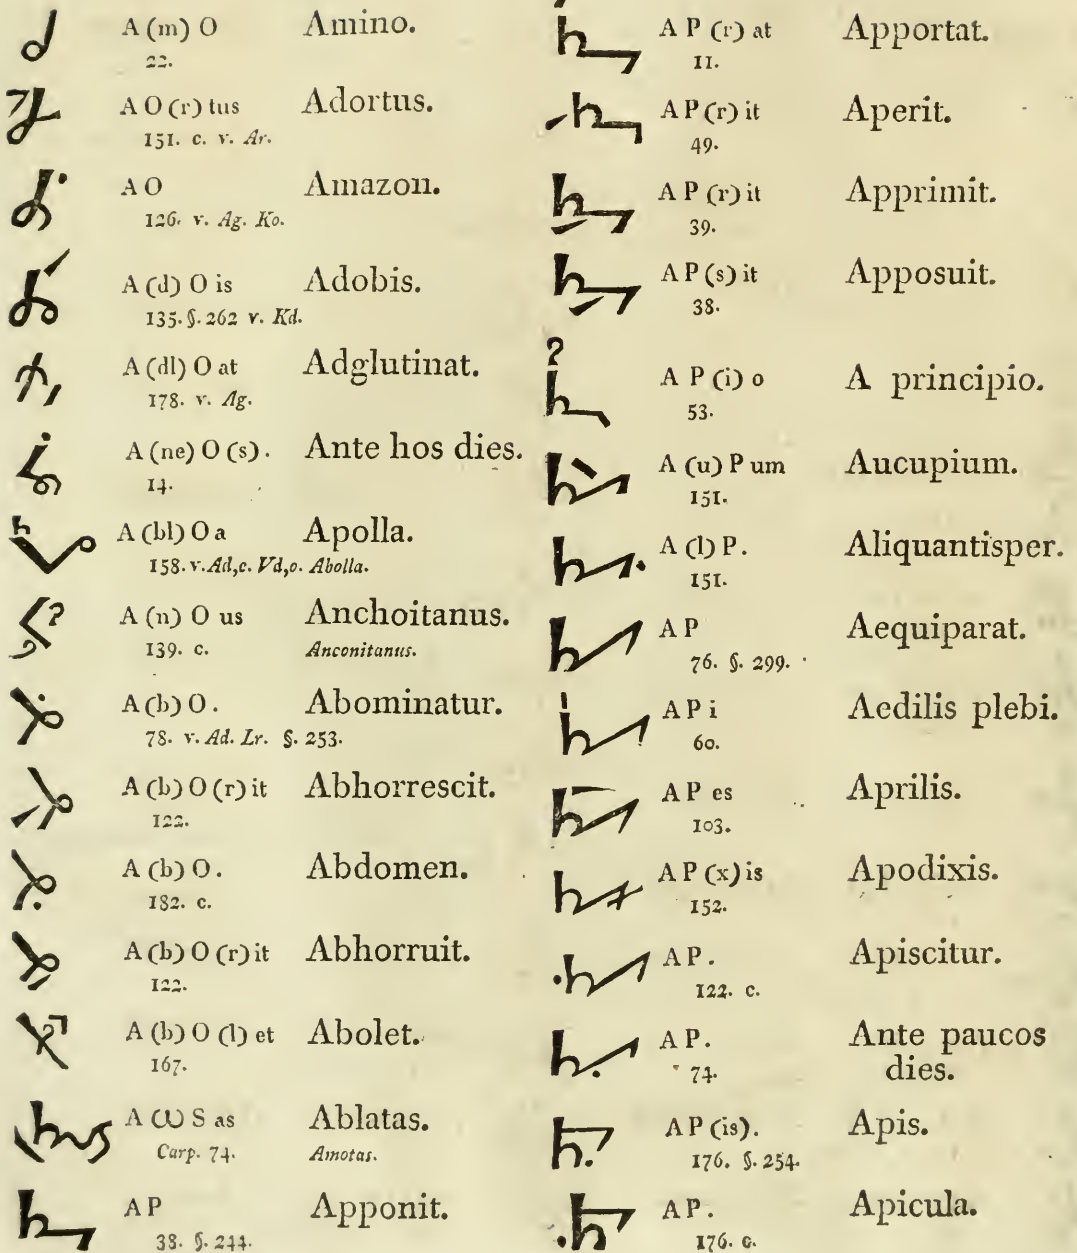 A (m) O Amino.
22.
A O (r) tus Adortus.
151. c. v. Ar.
A O Amazon.
126. v. Ag. Ko.
A (d) O is Adobis.
135. §. 262 v. Kd.
A (dl) O at Adglutinat.
178. v. Ag.
A (ne) O (s). Ante hos dies.
14.
A (bl) O a Apolla.
158. v. Ad, c. Vd, o. Abolla.
A (n) O us Anchoitanus.
139. c. Anconitanus.
A (b) O. Abominatur.
78. v. Ad. Lr. §. 253.
A (b) O (r) it Abhorrescit.
122.
A (b) O. Abdomen.
182. c.
A (b) O (r) it Abhorruit.
122.
A (b) O (l) et Abolet.
167.
A Ꞷ S as Ablatas.
Carp. 74. Amotas.
A P Apponit.
38. §. 244.
A P (r) at Apportat.
11.
A P (r) it Aperit.
49.
A P (r) it Apprimit.
39.
A P (s) it Apposuit.
38.
A P (i) o A principio.
53.
A (u) P um Aucupium.
151.
A (l) P. Aliquantisper.
151.
A P Aequiparat.
76. §. 299.
A P i Aedilis plebi.
60.
A P es Aprilis.
103.
A P (x) is Apodixis.
152.
A P. Apiscitur.
122. c.
A P. Ante paucos
74. dies.
A P (is). Apis.
176. §. 254.
A P. Apicula.
176. c.